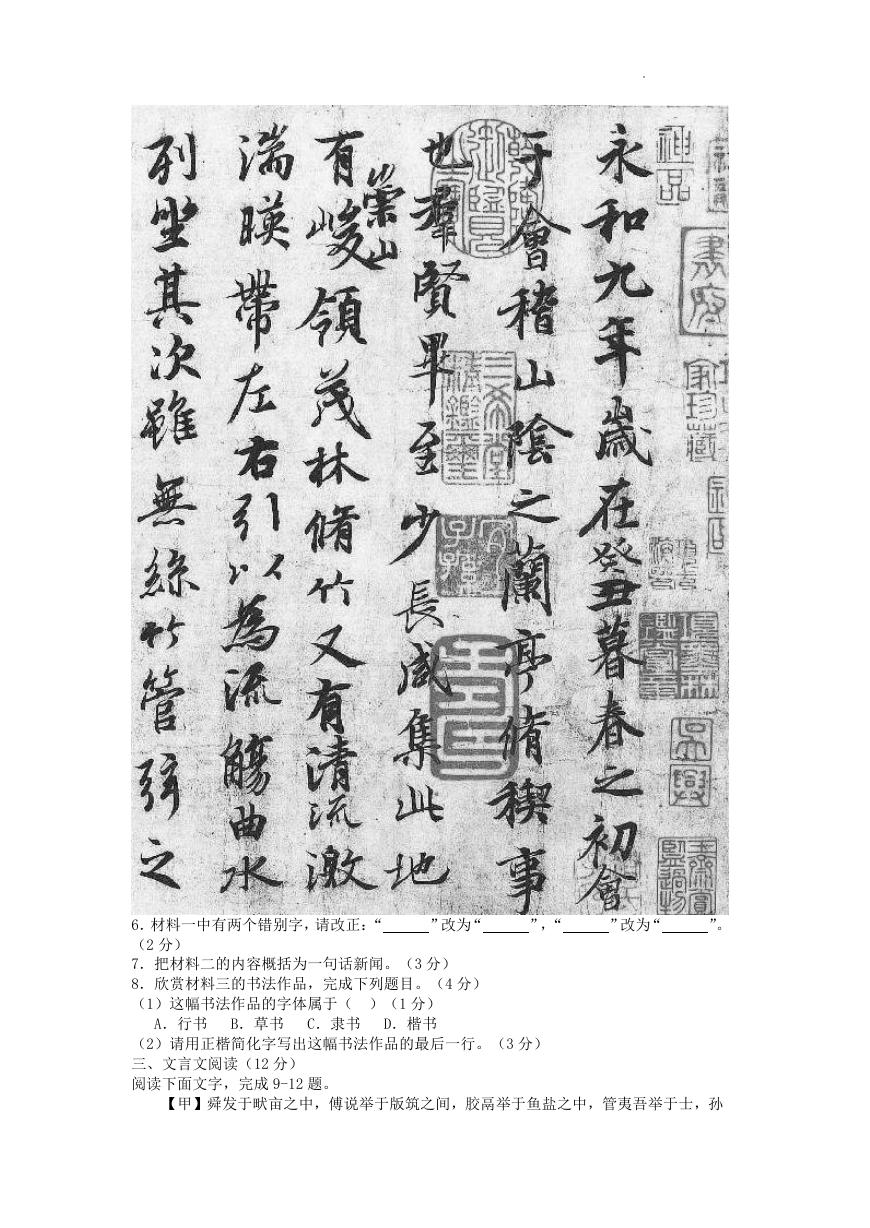 永和九年歲在癸丑暮春之初會
于會稽山陰之蘭亭脩稧事
也羣賢畢至少長咸集此地
有崇山峻領茂林脩竹又有清流激
湍暎帶左右引以為流觴曲水
列坐其次雖無絲竹管弦之
6．材料一中有两个错别字，请改正：“______”改为“______”，“______”改为“______”。
（2 分）
7．把材料二的内容概括为一句话新闻。（3 分）
8．欣赏材料三的书法作品，完成下列题目。（4 分）
（1）这幅书法作品的字体属于（　）（1 分）
A．行书　B．草书　C．隶书　D．楷书
（2）请用正楷简化字写出这幅书法作品的最后一行。（3 分）
三、文言文阅读（12 分）
阅读下面文字，完成 9-12 题。
【甲】舜发于畎亩之中，傅说举于版筑之间，胶鬲举于鱼盐之中，管夷吾举于士，孙